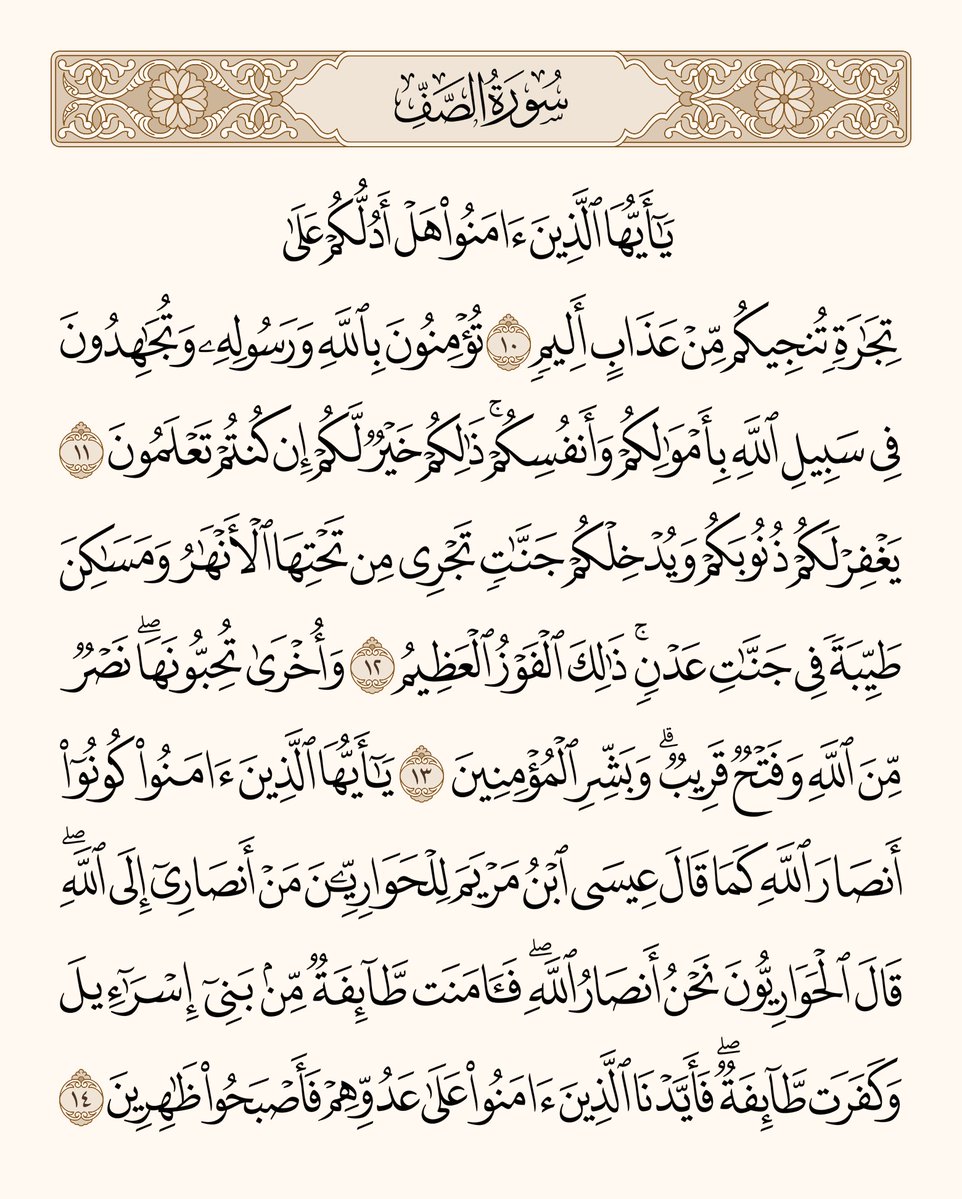 سُورَةُ الصَّفِّ
يَـٰٓأَيُّهَا ٱلَّذِينَ ءَامَنُوا۟ هَلْ أَدُلُّكُمْ عَلَىٰ
تِجَـٰرَةٍ تُنجِيكُم مِّنْ عَذَابٍ أَلِيمٍ ١٠ تُؤْمِنُونَ بِٱللَّهِ وَرَسُولِهِۦ وَتُجَـٰهِدُونَ
فِى سَبِيلِ ٱللَّهِ بِأَمْوَٰلِكُمْ وَأَنفُسِكُمْ ۚ ذَٰلِكُمْ خَيْرٌ لَّكُمْ إِن كُنتُمْ تَعْلَمُونَ ١١
يَغْفِرْ لَكُمْ ذُنُوبَكُمْ وَيُدْخِلْكُمْ جَنَّـٰتٍ تَجْرِى مِن تَحْتِهَا ٱلْأَنْهَـٰرُ وَمَسَـٰكِنَ
طَيِّبَةً فِى جَنَّـٰتِ عَدْنٍ ۚ ذَٰلِكَ ٱلْفَوْزُ ٱلْعَظِيمُ ١٢ وَأُخْرَىٰ تُحِبُّونَهَا ۖ نَصْرٌ
مِّنَ ٱللَّهِ وَفَتْحٌ قَرِيبٌ ۗ وَبَشِّرِ ٱلْمُؤْمِنِينَ ١٣ يَـٰٓأَيُّهَا ٱلَّذِينَ ءَامَنُوا۟ كُونُوٓا۟
أَنصَارَ ٱللَّهِ كَمَا قَالَ عِيسَى ٱبْنُ مَرْيَمَ لِلْحَوَارِيِّـۧنَ مَنْ أَنصَارِىٓ إِلَى ٱللَّهِ ۖ
قَالَ ٱلْحَوَارِيُّونَ نَحْنُ أَنصَارُ ٱللَّهِ ۖ فَـَٔامَنَت طَّآئِفَةٌ مِّنۢ بَنِىٓ إِسْرَٰٓءِيلَ
وَكَفَرَت طَّآئِفَةٌ ۖ فَأَيَّدْنَا ٱلَّذِينَ ءَامَنُوا۟ عَلَىٰ عَدُوِّهِمْ فَأَصْبَحُوا۟ ظَـٰهِرِينَ ١٤